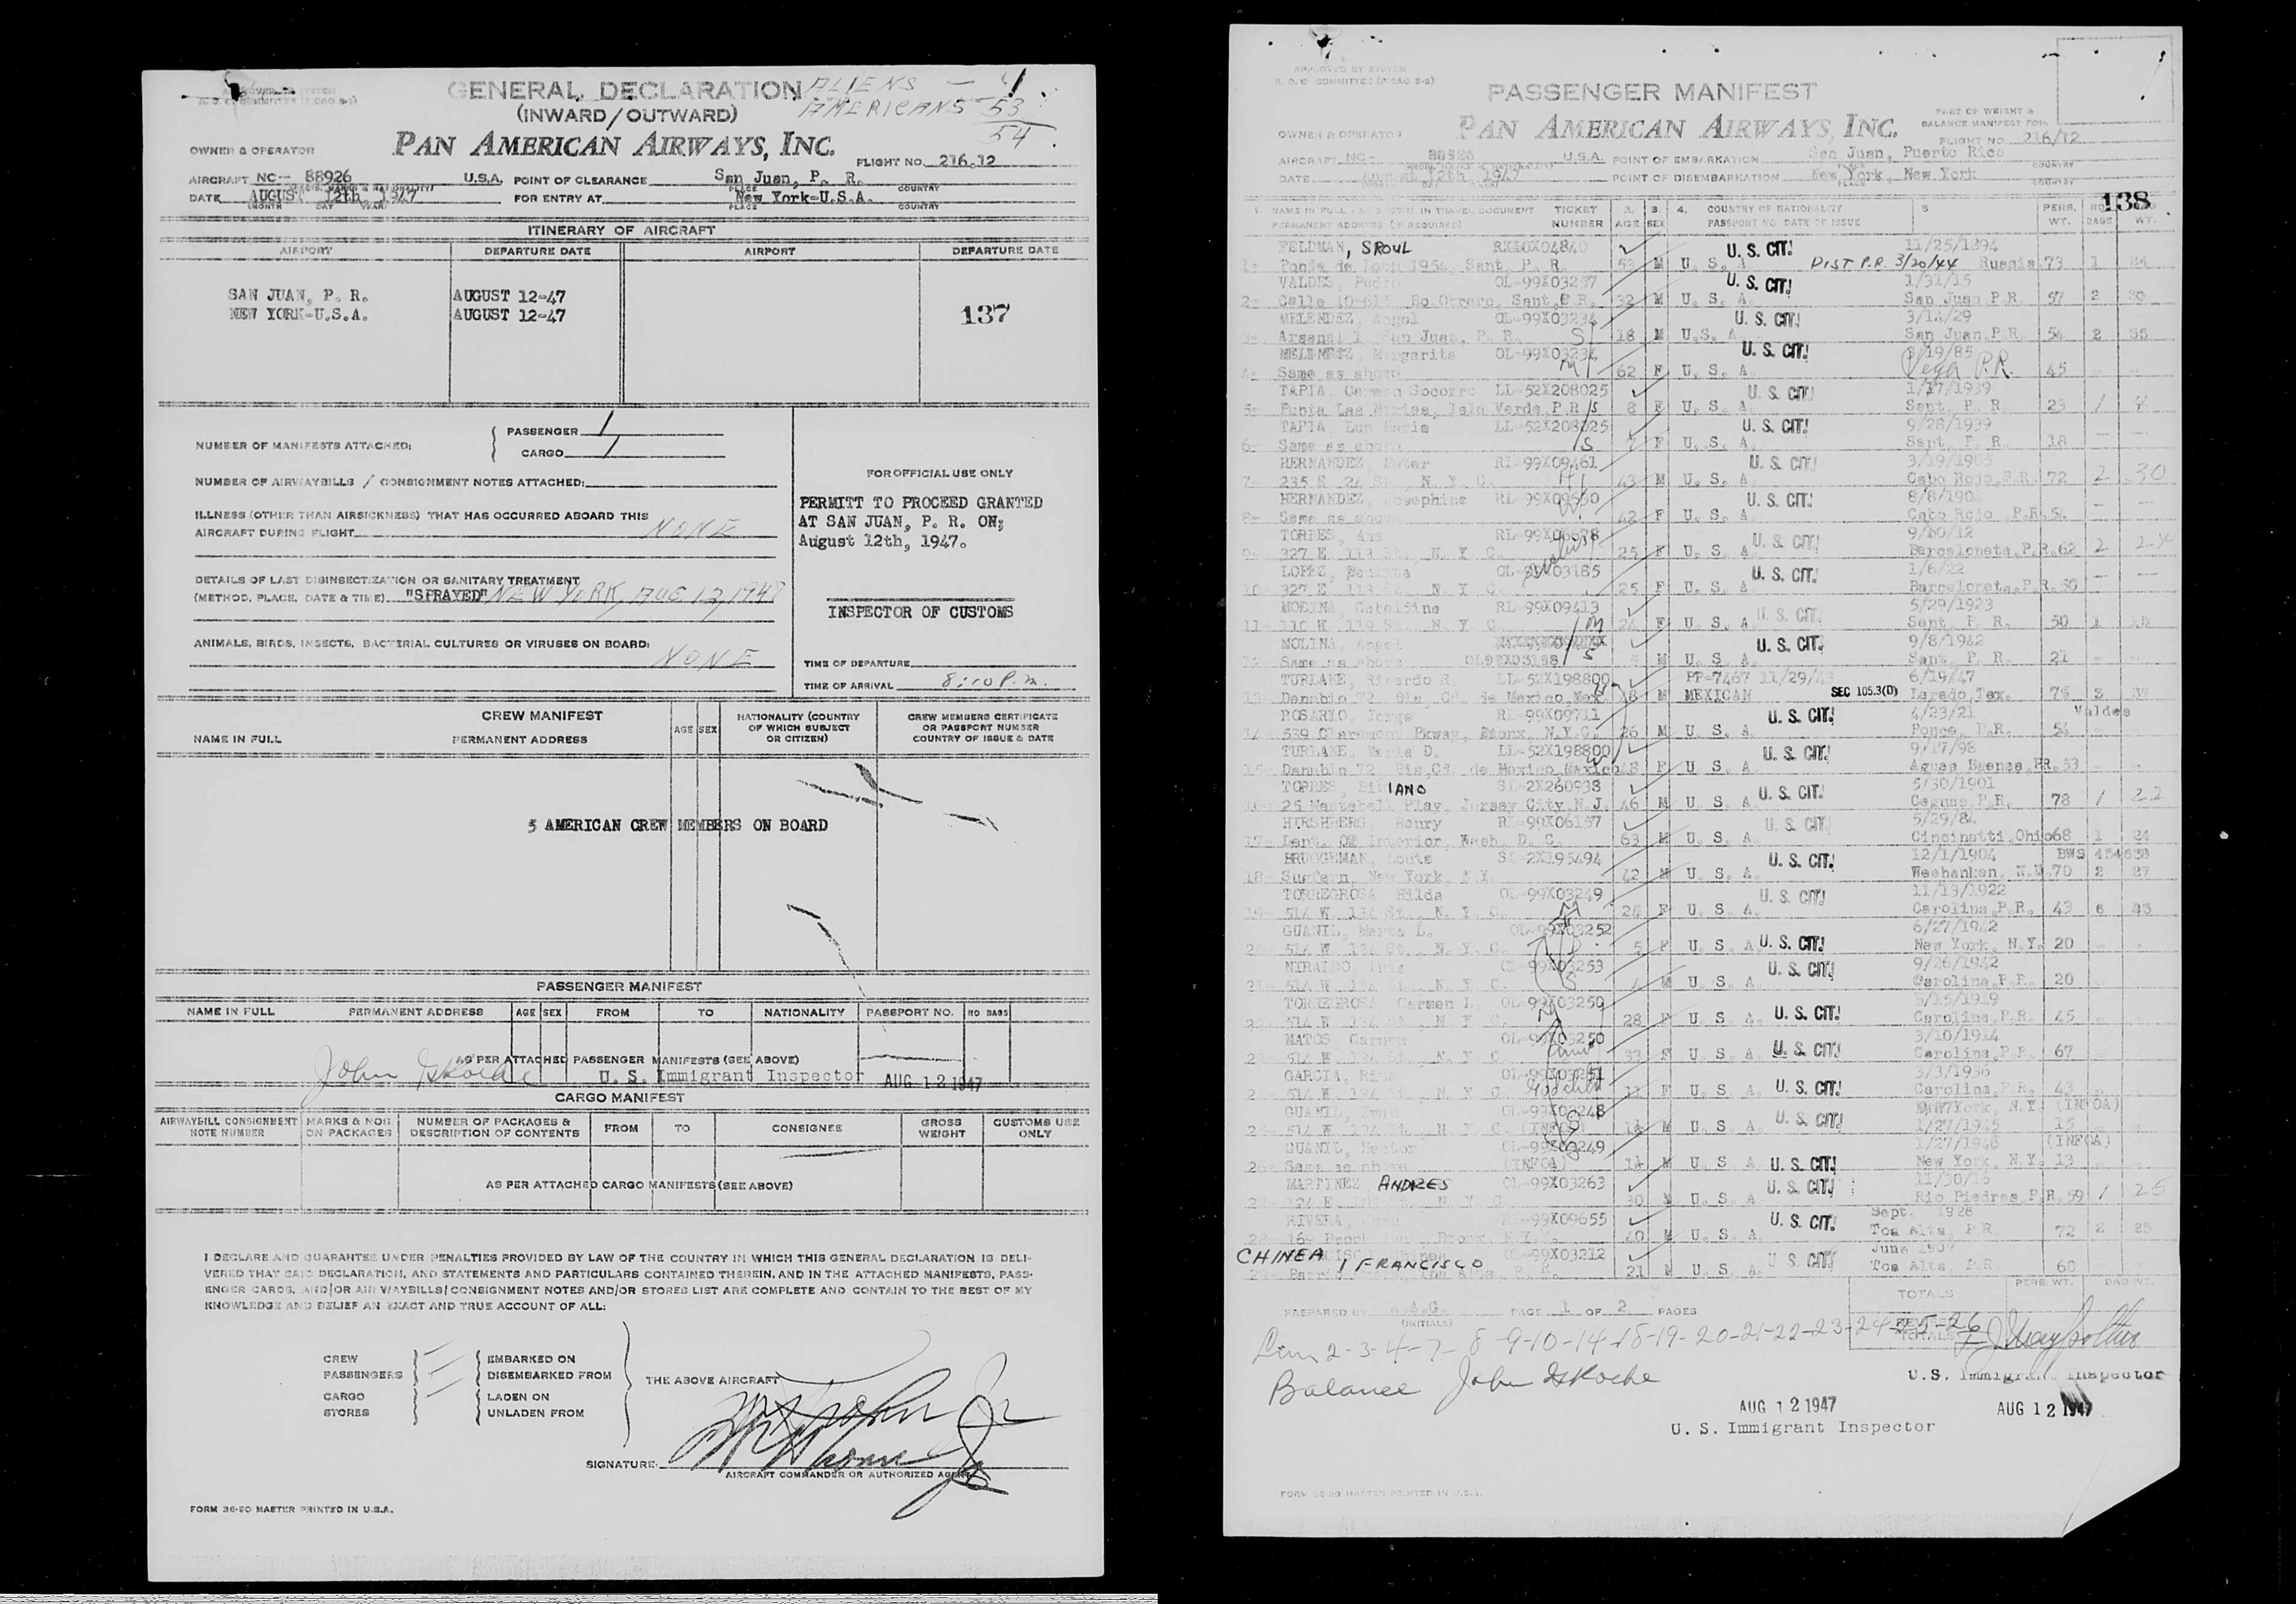 GENERAL DECLARATION
ALIENS - 1
(INWARD/OUTWARD)
AMERICANS 53
54
PAN AMERICAN AIRWAYS, INC.
OWNER & OPERATOR
FLIGHT NO. 216.12
AIRCRAFT NC-- 88926 U.S.A. POINT OF CLEARANCE San Juan, P. R.
PLACE COUNTRY
DATE AUGUST 12th 1947 FOR ENTRY AT New York-U.S.A.
(MONTH DAY YEAR) PLACE COUNTRY
ITINERARY OF AIRCRAFT
AIRPORT DEPARTURE DATE AIRPORT DEPARTURE DATE
SAN JUAN, P. R. AUGUST 12-47
NEW YORK-U.S.A. AUGUST 12-47
137
NUMBER OF MANIFESTS ATTACHED: PASSENGER 1
CARGO 1
NUMBER OF AIRWAYBILLS / CONSIGNMENT NOTES ATTACHED:
ILLNESS (OTHER THAN AIRSICKNESS) THAT HAS OCCURRED ABOARD THIS
AIRCRAFT DURING FLIGHT NONE
DETAILS OF LAST DISINSECTIZATION OR SANITARY TREATMENT
(METHOD, PLACE, DATE & TIME) "SPRAYED" NEW YORK, AUG 12, 1947
ANIMALS, BIRDS, INSECTS, BACTERIAL CULTURES OR VIRUSES ON BOARD:
NONE
FOR OFFICIAL USE ONLY
PERMITT TO PROCEED GRANTED
AT SAN JUAN, P. R. ON;
August 12th, 1947.
INSPECTOR OF CUSTOMS
TIME OF DEPARTURE
TIME OF ARRIVAL 8:10 P.m.
CREW MANIFEST
NAME IN FULL PERMANENT ADDRESS AGE SEX NATIONALITY (COUNTRY OF WHICH SUBJECT OR CITIZEN) CREW MEMBERS CERTIFICATE OR PASSPORT NUMBER COUNTRY OF ISSUE & DATE
5 AMERICAN CREW MEMBERS ON BOARD
PASSENGER MANIFEST
NAME IN FULL PERMANENT ADDRESS AGE SEX FROM TO NATIONALITY PASSPORT NO. NO BAGS
AS PER ATTACHED PASSENGER MANIFESTS (SEE ABOVE)
John
U. S. Immigrant Inspector AUG 12 1947
CARGO MANIFEST
AIRWAYBILL CONSIGNMENT NOTE NUMBER MARKS & NOS ON PACKAGES NUMBER OF PACKAGES & DESCRIPTION OF CONTENTS FROM TO CONSIGNEE GROSS WEIGHT CUSTOMS USE ONLY
AS PER ATTACHED CARGO MANIFESTS (SEE ABOVE)
I DECLARE AND GUARANTEE UNDER PENALTIES PROVIDED BY LAW OF THE COUNTRY IN WHICH THIS GENERAL DECLARATION IS DELI-
VERED THAT SAID DECLARATION, AND STATEMENTS AND PARTICULARS CONTAINED THEREIN, AND IN THE ATTACHED MANIFESTS, PASS-
ENGER CARDS, AND/OR AIR WAYBILLS/CONSIGNMENT NOTES AND/OR STORES LIST ARE COMPLETE AND CONTAIN TO THE BEST OF MY
KNOWLEDGE AND BELIEF AN EXACT AND TRUE ACCOUNT OF ALL:
CREW EMBARKED ON
PASSENGERS DISEMBARKED FROM
THE ABOVE AIRCRAFT
CARGO LADEN ON
STORES UNLADEN FROM
SIGNATURE:
AIRCRAFT COMMANDER OR AUTHORIZED AGENT
FORM 36-50 MASTER PRINTED IN U.S.A.
APPROVED BY SYSTEM
A.D.C COMMITTEE (PICAO S-2)
PASSENGER MANIFEST
PART OF WEIGHT &
BALANCE MANIFEST FOR:
OWNER & OPERATOR PAN AMERICAN AIRWAYS, INC.
FLIGHT NO. 216/12
AIRCRAFT NC- 88926 U.S.A. POINT OF EMBARKATION San Juan, Puerto Rico
DATE August 12th 1947 POINT OF DISEMBARKATION New York, New York
138
NAME IN FULL TICKET 2. 3. 4. COUNTRY OF NATIONALITY 5 PERS. NO
PERMANENT ADDRESS (IF REQUIRED) NUMBER AGE SEX PASSPORT NO. DATE OF ISSUE WT. BAGS WT.
FELDMAN, SROUL RX10X04840 U. S. CIT. 11/25/1894
1- Ponce de Leon 1954, Sant, P. R. 53 M U. S. A. DIST P.R. 3/20/44 Russia 73 1 24
VALDES, Pedro OL-99X03267 U. S. CIT. 1/31/15
2- Calle 10-615 Bo.Obrero, Sant,P.R. 32 M U. S. A. San Juan P.R. 57 2 30
MELENDEZ, Angel OL-99X03234 U. S. CIT. 3/14/29
3- Arsenal 1, San Juan, P. R. S 18 M U.S. A San Juan P.R. 54 2 55
MELENDEZ, Margarita OL-99X03234 U. S. CIT. 3/19/85
4- Same as above M 62 F U. S. A. Vega P.R. 45
TAPIA, Carmen Socorro LL-52X208025 U. S. CIT. 1/17/1939
5- Punta Las Marias, Isla Verde,P.R S 8 F U. S. A. Sant, P. R. 23 1 4
TAPIA, Luz Maria LL-52X208025 U. S. CIT. 9/28/1939
6- Same as above S 7 F U. S. A. Sant. P. R. 18
HERNANDEZ, RL-99X09461 U. S. CIT. 3/19/1905
7- 235 E. 24 St., N. Y. C. 43 M U. S. A Cabo Rojo,P.R. 72 2 30
HERNANDEZ, Josephine RL-99X09630 U. S. CIT. 8/8/1904
8- Same as above 42 F U. S. A Cabo Rojo P.R. 54
TORRES, Ana RL-99X06698 U. S. CIT. 9/10/12
9- 327 E. 113 St., N. Y. C. 25 F U. S. A Barceloneta,P.R. 62 2 24
LOPEZ, OL-99X03185 U. S. CIT. 1/6/22
10- 327 E. 113 St. N. Y. C. 25 F U. S. A. Barceloneta,P.R. 50
MOLINA, Cataldina RL-99X09413 U. S. CIT. 5/29/1923
11- 110 W. 119 St. N. Y. C. M 24 F U. S. A Sant, P. R. 50 1 15
MOLINA, Angel U. S. CIT. 9/8/1942
12- Same as above OL99X03188 S M U. S. A. Sant, P. R. 21
TURLANE, Ricardo R. LL-52X198800 PP-7467 11/29/43 6/19/47
13- Danubio 72, Sis, Cd. de Mexico,Mex 48 M MEXICAN SEC 105.3(D) Laredo,Tex. 75 3 37
ROSARIO, Jorge RL-99X09711 U. S. CIT. 4/23/21 Valdes
14- 539 Claremont Pkway, Bronx, N.Y.C. 26 M U. S. A. Ponce, P.R. 54
TURLANE, Maria D. LL-52X198800 U. S. CIT. 9/17/98
15- Danubio 72, Sis,Cd. de Mexico Mexico 48 F U. S. A Aguas Buenas,PR. 53
TORRES, BIBIANO SL-2X260938 U. S. CIT. 5/30/1901
16- 25 Play, Jersey City N.J. 46 M U. S. A Caguas P.R. 78 1 22
HIRSHBERG, Henry RL-99X06157 U. S. CIT. 5/29/84
17- Dept. Of Interior, Wash. D. C. 63 M U. S. A. Cincinatti,Ohio 68 1 24
BRUGGEMAN, Louis SL-2X195494 U. S. CIT. 12/1/1904 BWS
18- New York, N.Y. 42 M U. S. A. Weehanken, N.J. 70 2 27
TORREGROSA Hilda OL-99X03249 U. S. CIT. 11/13/1922
19- 514 W. 134 St., N. Y. C. 24 F U. S. A. Carolina,P.R. 43 6 85
GUANIL, Marta L. OL-99X03252 6/27/1942
20- 514 W. 134 St. N. Y. C. 5 F U. S. A U. S. CIT. New York, N.Y. 20
OL-99X03253 U. S. CIT. 9/26/1942
21- 514 W. 134 St., N. Y. C. 4 M U. S. A. Carolina,P.R. 20
TORREGROSA Carmen I. OL-99X03250 5/15/1919
22- 514 W. 134 St., N. Y. C. 28 F U. S. A. U. S. CIT. Carolina,P.R. 45
MATOS, Carmen OL-99X03250 3/10/1914
23- 514 W. 134 St., N. Y. C. Aunt 33 F U. S. A U. S. CIT. Carolina,P.R. 67
GARCIA, OL-99X03251 3/3/1936
24- 514 W. 134 St., N. Y. C. 11 F U. S. A U. S. CIT. Carolina,P.R. 43
GUANIL, OL-99X03248 New York, N.Y. (INFOA)
25- 514 W. 134 St. N. Y. C. (INFOA) M U. S. A. U. S. CIT. 1/27/1945 15
GUANIL, Hector OL-99X03249 1/27/1946 (INFOA)
26- Same as above (INFOA) M U. S. A U. S. CIT. New York, N.Y. 13
MARTINEZ ANDRES OL-99X03263 U. S. CIT. 11/30/16
27- N. Y. C. 30 M U. S. A Rio Piedras,P.R. 59 1 25
RIVERA, Juan RL-99X09655 U. S. CIT. Sept. 1928
28- Bronx, N.Y. 40 M U. S. A. Toa Alta, P.R 72 2 25
CHINEA, FRANCISCO OL-99X03212 U. S. CIT. June 1907
29- Toa Alta, P. R. 21 M U. S. A Toa Alta, P.R. 60
PERS. WT. BAG WT.
TOTALS
PREPARED BY A.G. PAGE 1 OF 2 PAGES
(INITIALS)
2-3-4-7-8-9-10-14-18-19-20-21-22-23-24-25-26
Balance John
U.S. Immigrant Inspector
AUG 12 1947 AUG 12 1947
U. S. Immigrant Inspector
FORM 36-50 MASTER PRINTED IN U.S.A.